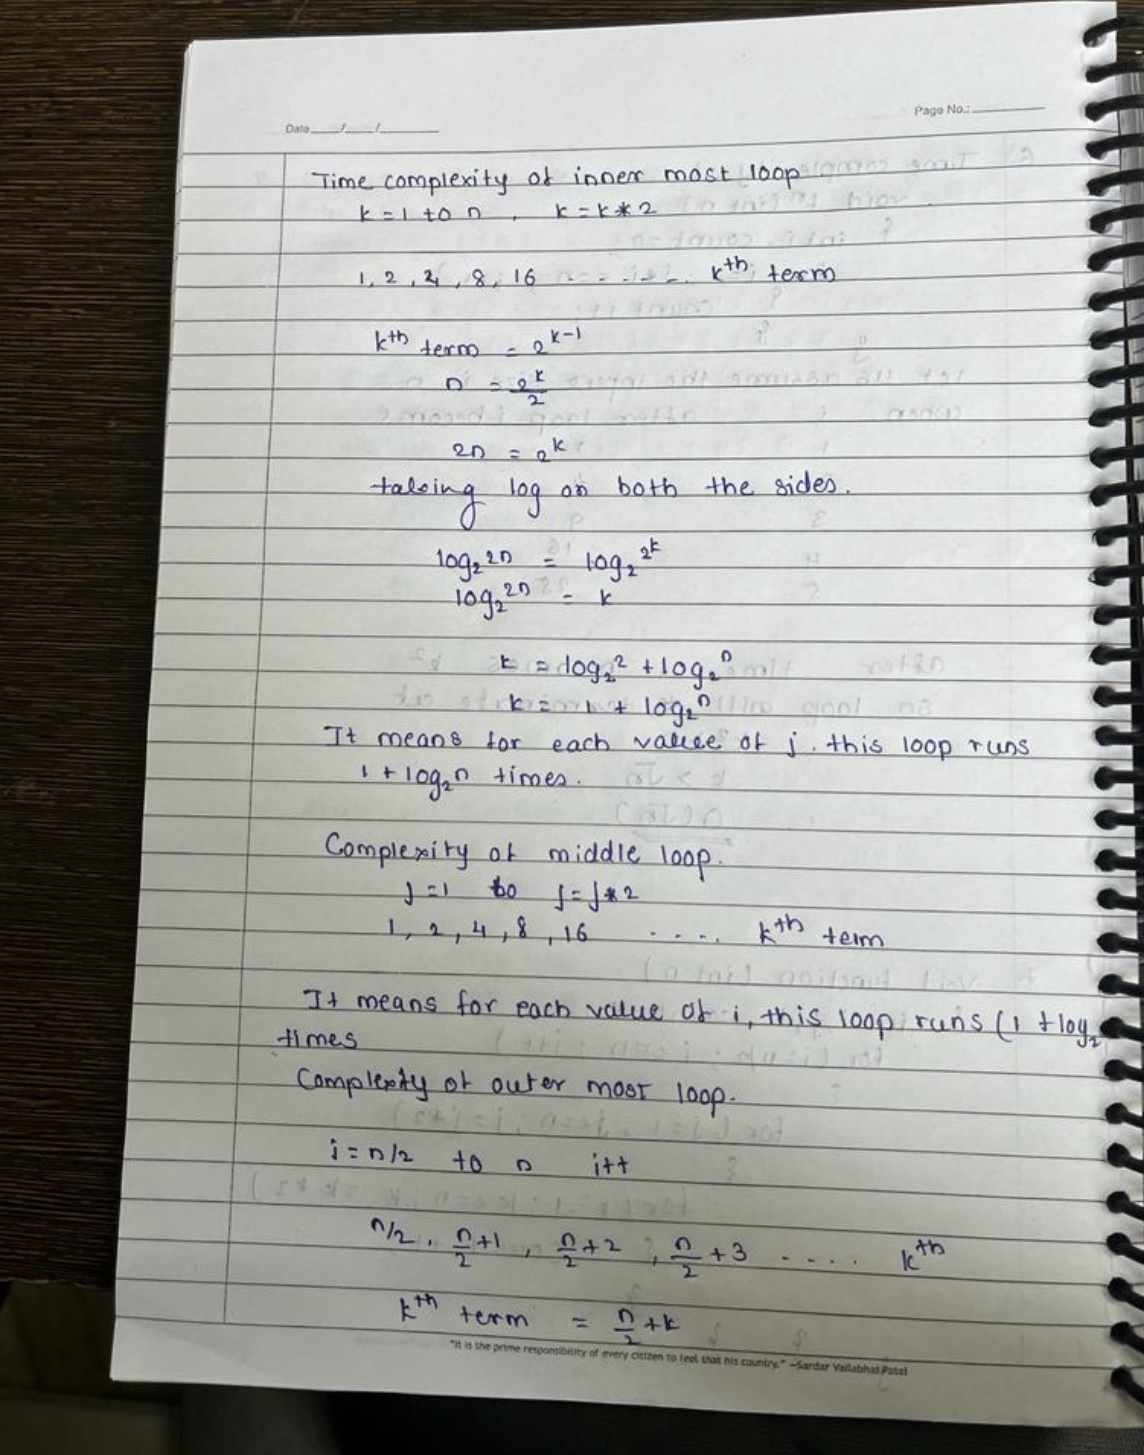 Page No.:
Date / /
Time complexity of inner most loop
k = 1 to n , k = k * 2
1, 2, 4, 8, 16 - - - . - . - . kth term
kth term = 2^(k-1)
n = 2^k/2
2n = 2^k
taking log on both the sides.
log₂ 2n = log₂ 2^k
log₂ 2n = k
k = log₂ 2 + log₂ n
k = 1 + log₂ n
It means for each value of j. this loop runs
1 + log₂n times.
Complexity of middle loop.
j = 1 to j = j * 2
1, 2, 4, 8, 16 - - - . kth term
It means for each value of i, this loop runs (1 + log₂
times
Complexity of outer most loop.
i = n/2 to n i++
n/2 , n/2 + 1 , n/2 + 2 , n/2 + 3 - - . . . kth
kth term = n/2 + k
"It is the prime responsibility of every citizen to feel that his country." –Sardar Vallabhai Patel